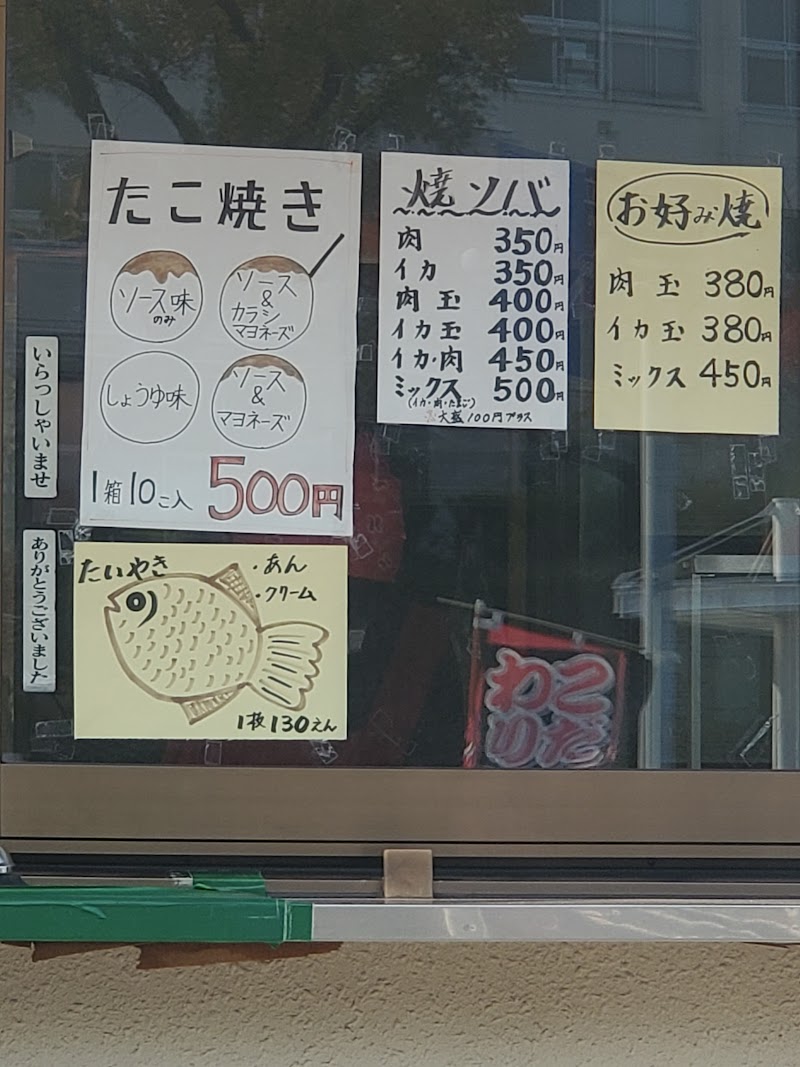 いらっしゃいませ
ありがとうございました
たこ焼き
ソース味
のみ
ソース
&
カラシ
マヨネーズ
しょうゆ味
ソース
&
マヨネーズ
1箱10こ入 500円
たいやき
・あん
・クリーム
1枚130えん
焼ソバ
肉 350円
イカ 350円
肉玉 400円
イカ玉 400円
イカ・肉 450円
ミックス 500円
(イカ・肉・たまご)
※大盛100円プラス
お好み焼
肉玉 380円
イカ玉 380円
ミックス 450円
こだ
わり